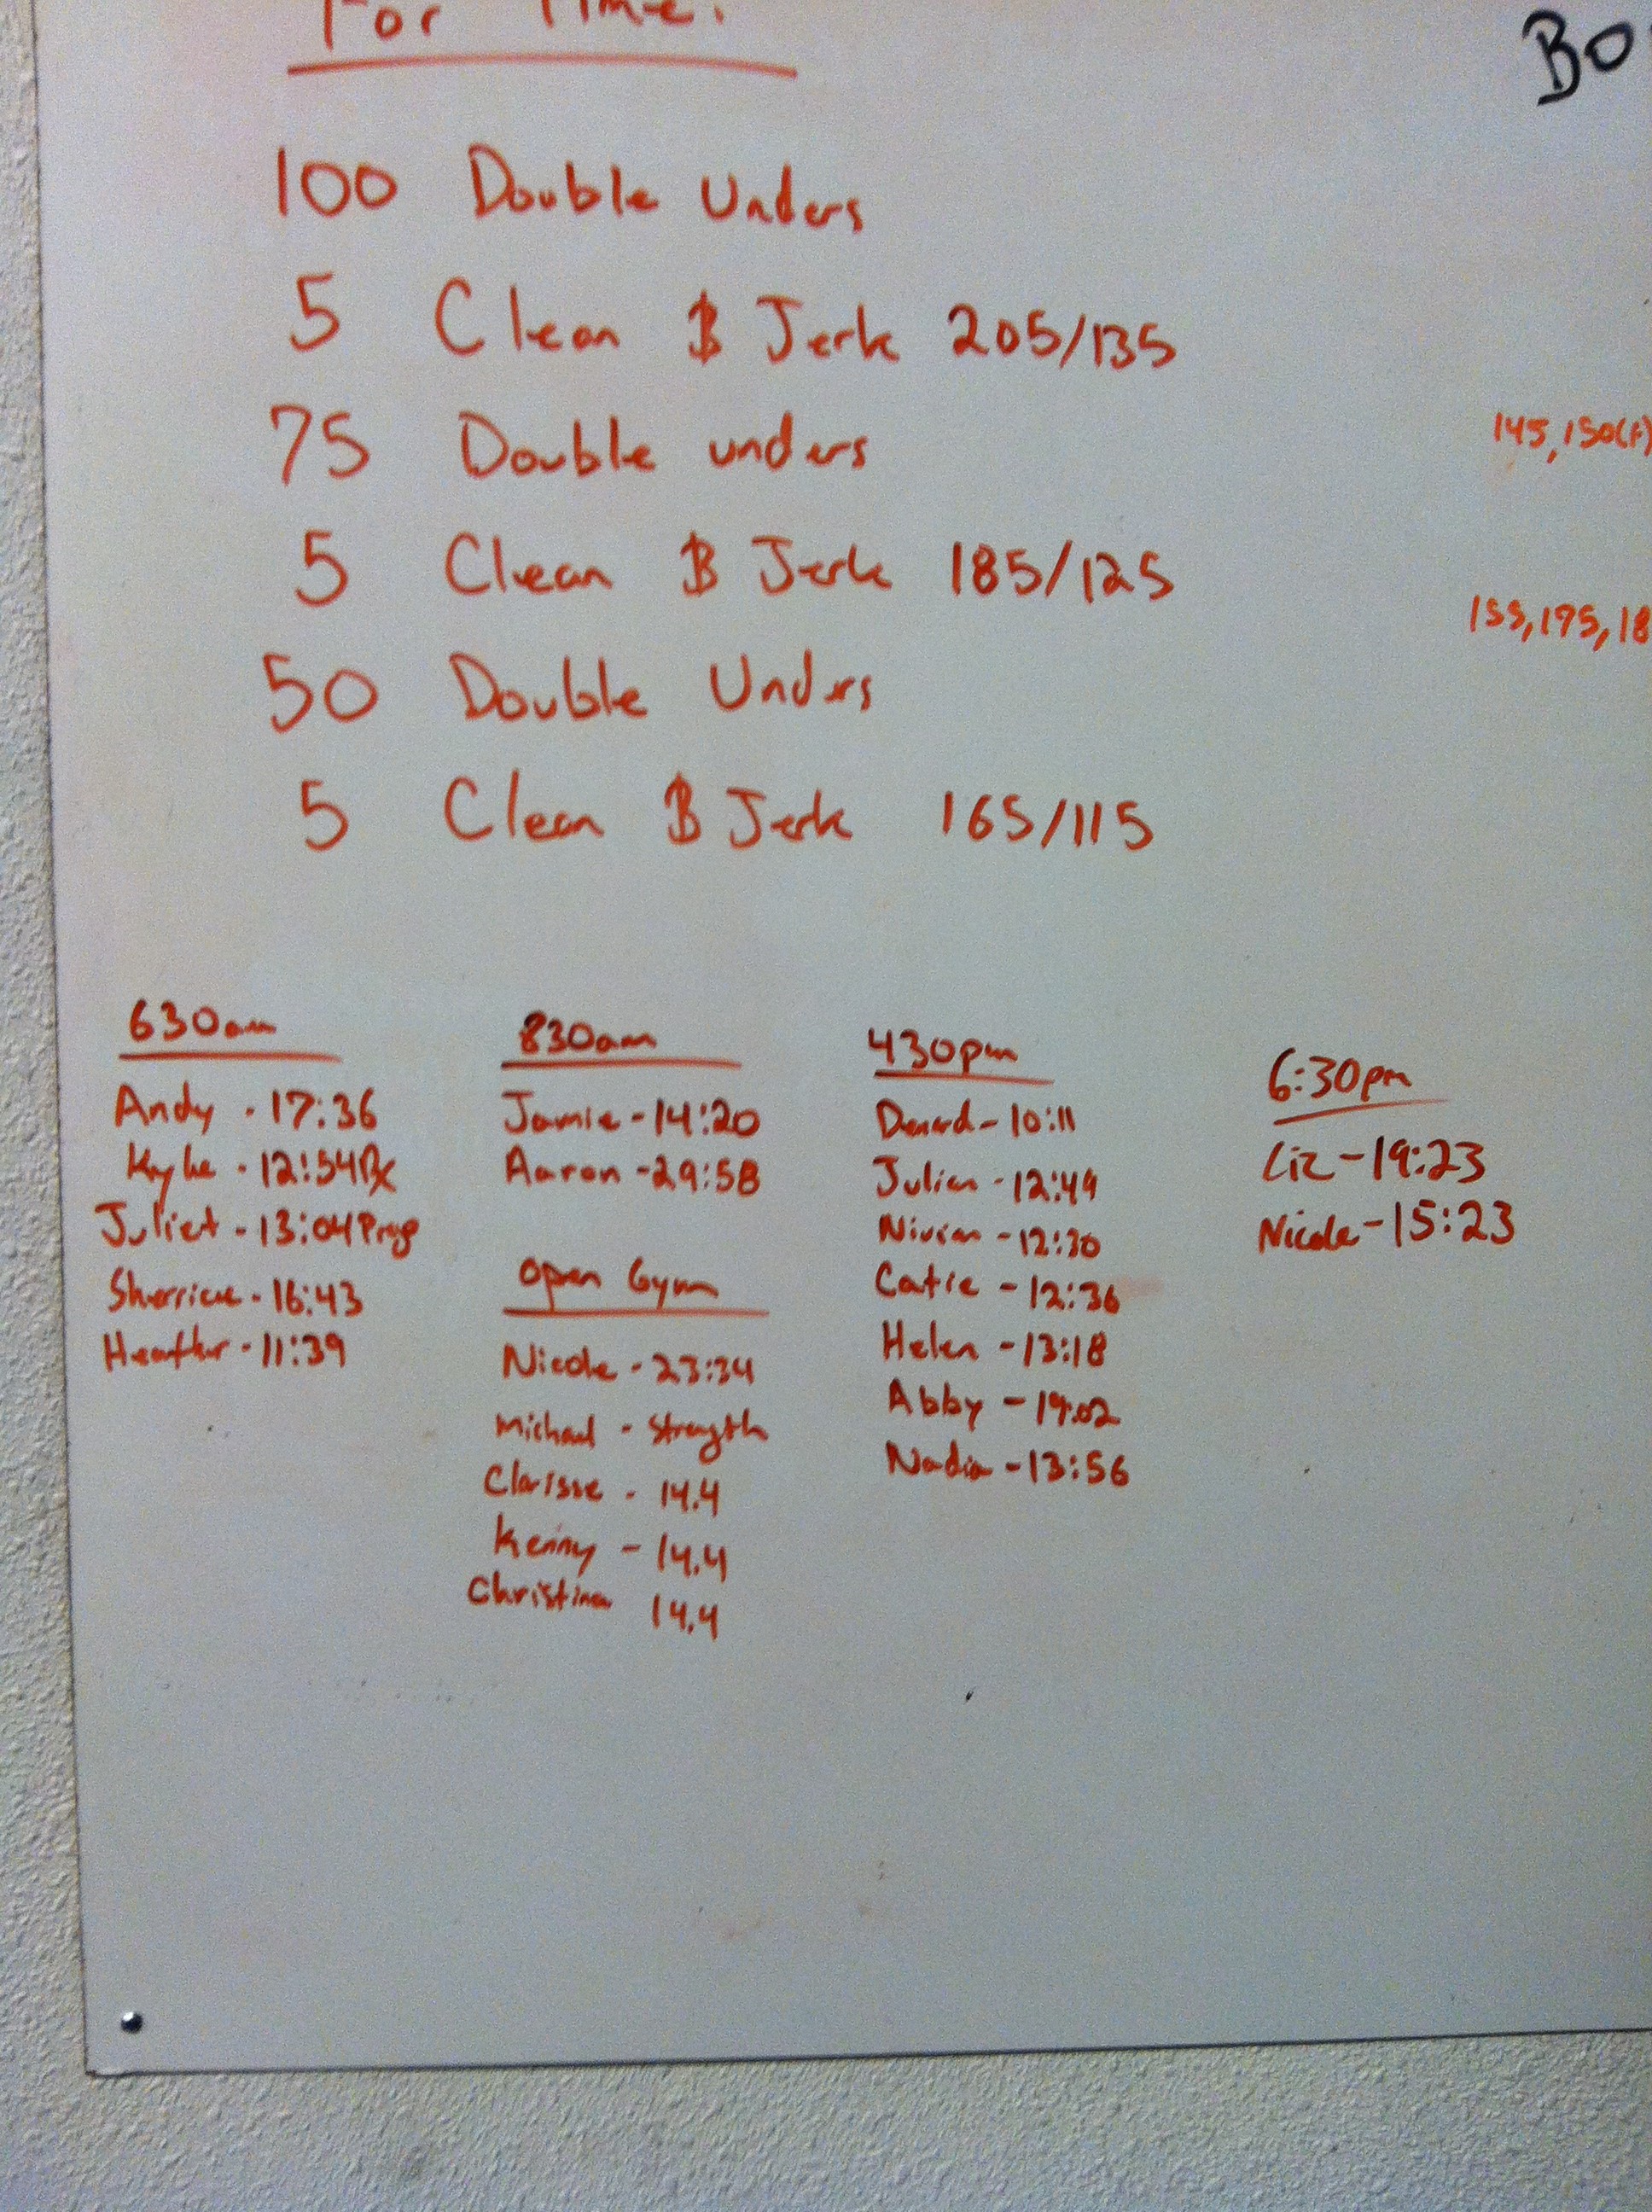 For Time:
Bo
100 Double Unders
5 Clean & Jerk 205/135
75 Double unders
5 Clean & Jerk 185/125
50 Double Unders
5 Clean & Jerk 165/115
145, 150(F)
155, 175, 18
630am
Andy - 17:36
Kylie - 12:54 Rx
Juliet - 13:04 Prog
16:43
Heather - 11:39
830am
Jamie - 14:20
Aaron - 29:58
Open Gym
Nicole - 23:34
Michael - Strength
Clarisse - 14.4
Kenny - 14.4
Christina 14.4
430pm
Denard - 10:11
Julien - 12:49
Nivian - 12:30
Catie - 12:36
Helen - 13:18
Abby - 19:02
Nadia - 13:56
6:30pm
Liz - 19:23
Nicole - 15:23